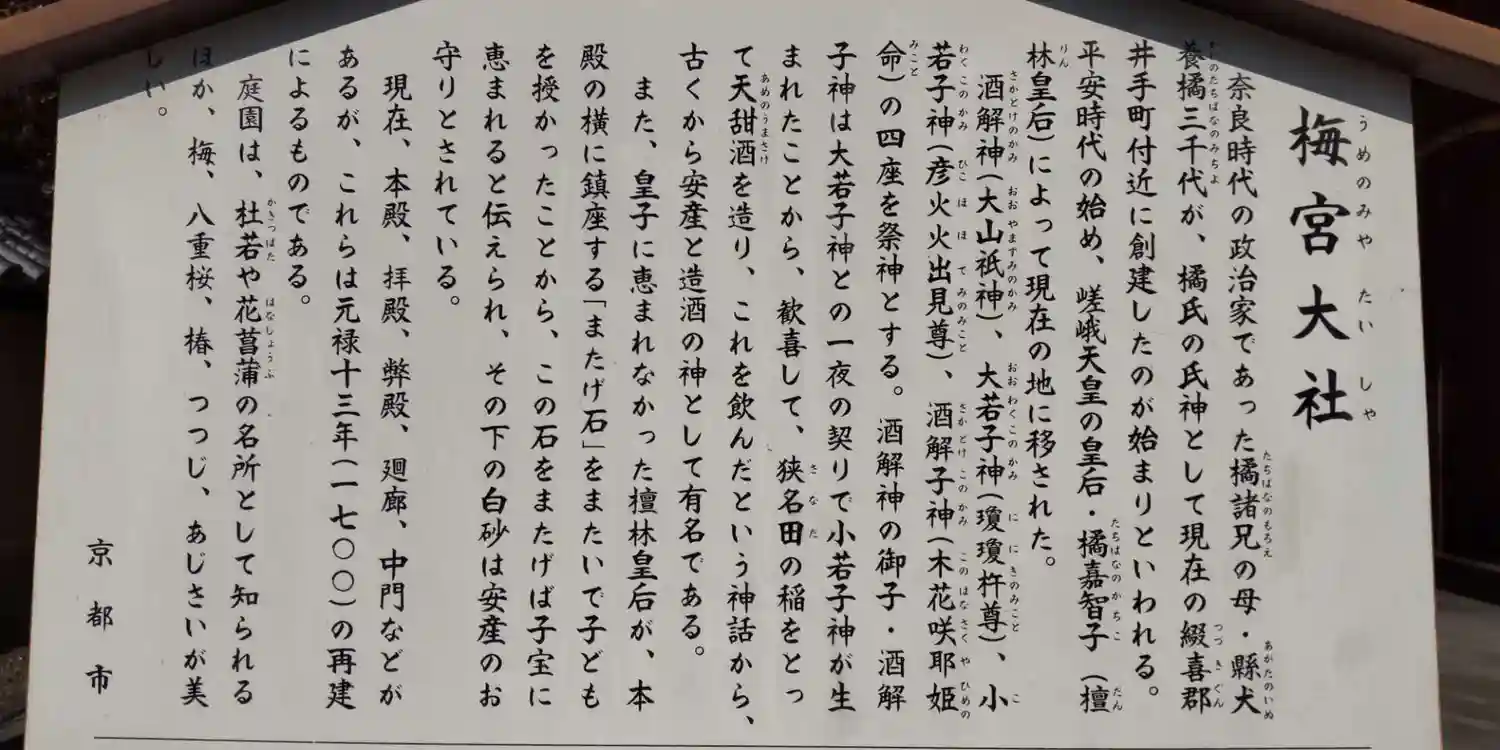 梅宮大社
奈良時代の政治家であった橘諸兄の母・縣犬
養橘三千代が、橘氏の氏神として現在の綴喜郡
井手町付近に創建したのが始まりといわれる。
平安時代の始め、嵯峨天皇の皇后・橘嘉智子（檀
林皇后）によって現在の地に移された。
酒解神（大山祇神）、大若子神（瓊瓊杵尊）、小
若子神（彦火火出見尊）、酒解子神（木花咲耶姫
命）の四座を祭神とする。酒解神の御子・酒解
子神は大若子神との一夜の契りで小若子神が生
まれたことから、歓喜して、狭名田の稲をとっ
て天甜酒を造り、これを飲んだという神話から、
古くから安産と造酒の神として有名である。
また、皇子に恵まれなかった檀林皇后が、本
殿の横に鎮座する「またげ石」をまたいで子ども
を授かったことから、この石をまたげば子宝に
恵まれると伝えられ、その下の白砂は安産のお
守りとされている。
現在、本殿、拝殿、弊殿、廻廊、中門などが
あるが、これらは元禄十三年（一七〇〇）の再建
によるものである。
庭園は、杜若や花菖蒲の名所として知られる
ほか、梅、八重桜、椿、つつじ、あじさいが美
しい。
京都市